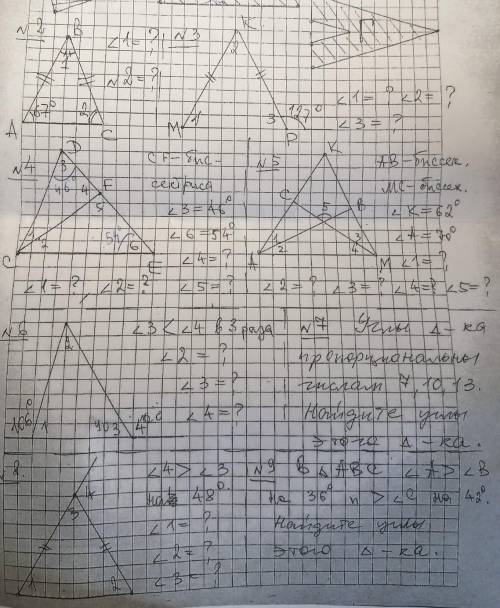 №2 B ∠1=? №3 K
1 №2=? 2
A 67° 2 C M 1 3 127° P
∠1=? ∠2=?
∠3=?
№4 D CF-бис- №5 K AB-биссек.
3 46° 4 F сектриса C MC-биссек.
5 ∠3=46° 5 B ∠K=62°
∠6=54° 1 3 ∠A=70°
C 1 2 54° 6 E ∠4=? A 2 4 M ∠1=?
∠1=?, ∠2=? ∠5=? ∠2=? ∠3=? ∠4=? ∠5=?
№6 ∠3<∠4 в 3 раза №7 Углы Δ-ка
2 ∠2=? пропорциональны
∠3=? числам 7, 10, 13.
106° 1 3 4 ∠4=? Найдите углы
этого Δ-ка.
8. ∠4>∠3 №9 В ΔABC ∠A>∠B
K на 48°. на 36° и >∠C на 42°.
3 ∠1=? Найдите углы
∠2=? этого Δ-ка.
1 2 ∠3=?